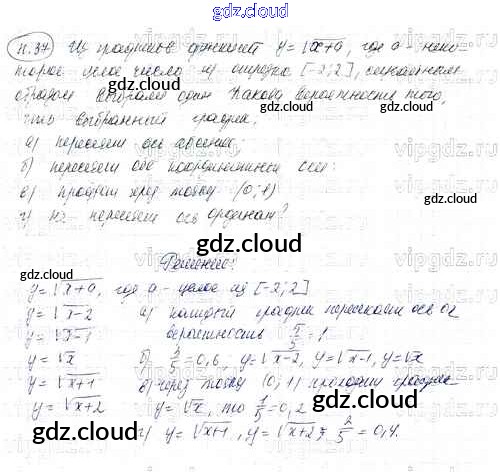 gdz.cloud
н.37 Из графиков функций y = √x+a, где a - неко-
торое целое число из отрезка [-2; 2], случайным
образом выбрали один. Какова вероятность того,
что выбранный график:
а) пересекает ось абсцисс;
б) пересекает обе координатные оси:
в) проходит через точку (0; 1)
г) не пересекает ось ординат?
gdz.cloud
Решение:
gdz.cloud gdz.cloud
y = √x+a, где a - целое из [-2; 2]
y = √x-2 а) каждый график пересекает ось ox
y = √x-1 вероятность 5/5 = 1
y = √x б) 3/5 = 0,6; y = √x-2, y = √x-1, y = √x
y = √x+1 в) через точку (0; 1) проходит график
y = √x+2 y = √x, то 1/5 = 0,2
г) y = √x+1, y = √x+2; 2/5 = 0,4.
gdz.cloud gdz.cloud